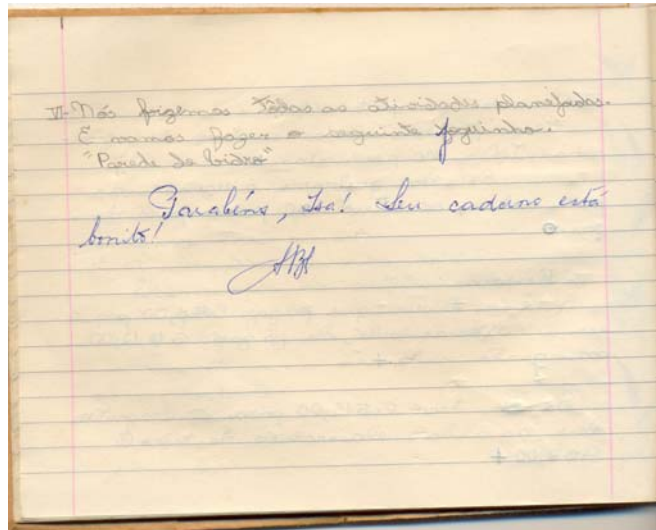 VI- Nós fizemos tôdas as atividades planejadas.
E vamos fazer o seguinte joguinho.
"Parede de Vidro"
Parabéns, Isa! Seu caderno está
bonito!